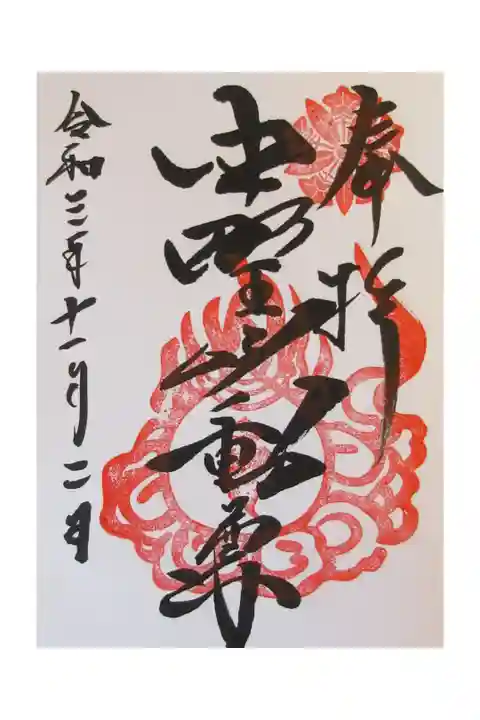 奉拝
中野不動尊
令和三年十一月二日